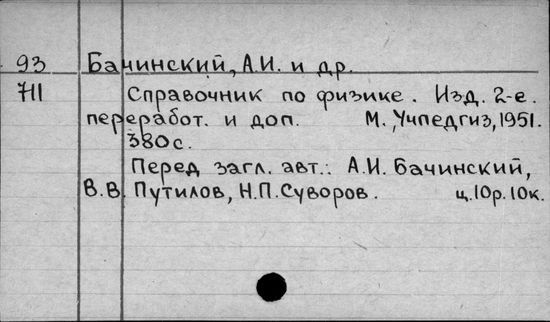 93 Бачинский, А.И. и др.
711 Справочник по физике. Изд. 2-е.
переработ. и доп. М., Учпедгиз, 1951.
380 с.
Перед загл. авт.: А.И. Бачинский,
В.В. Путилов, Н.П. Суворов. ц. 10р. 10к.